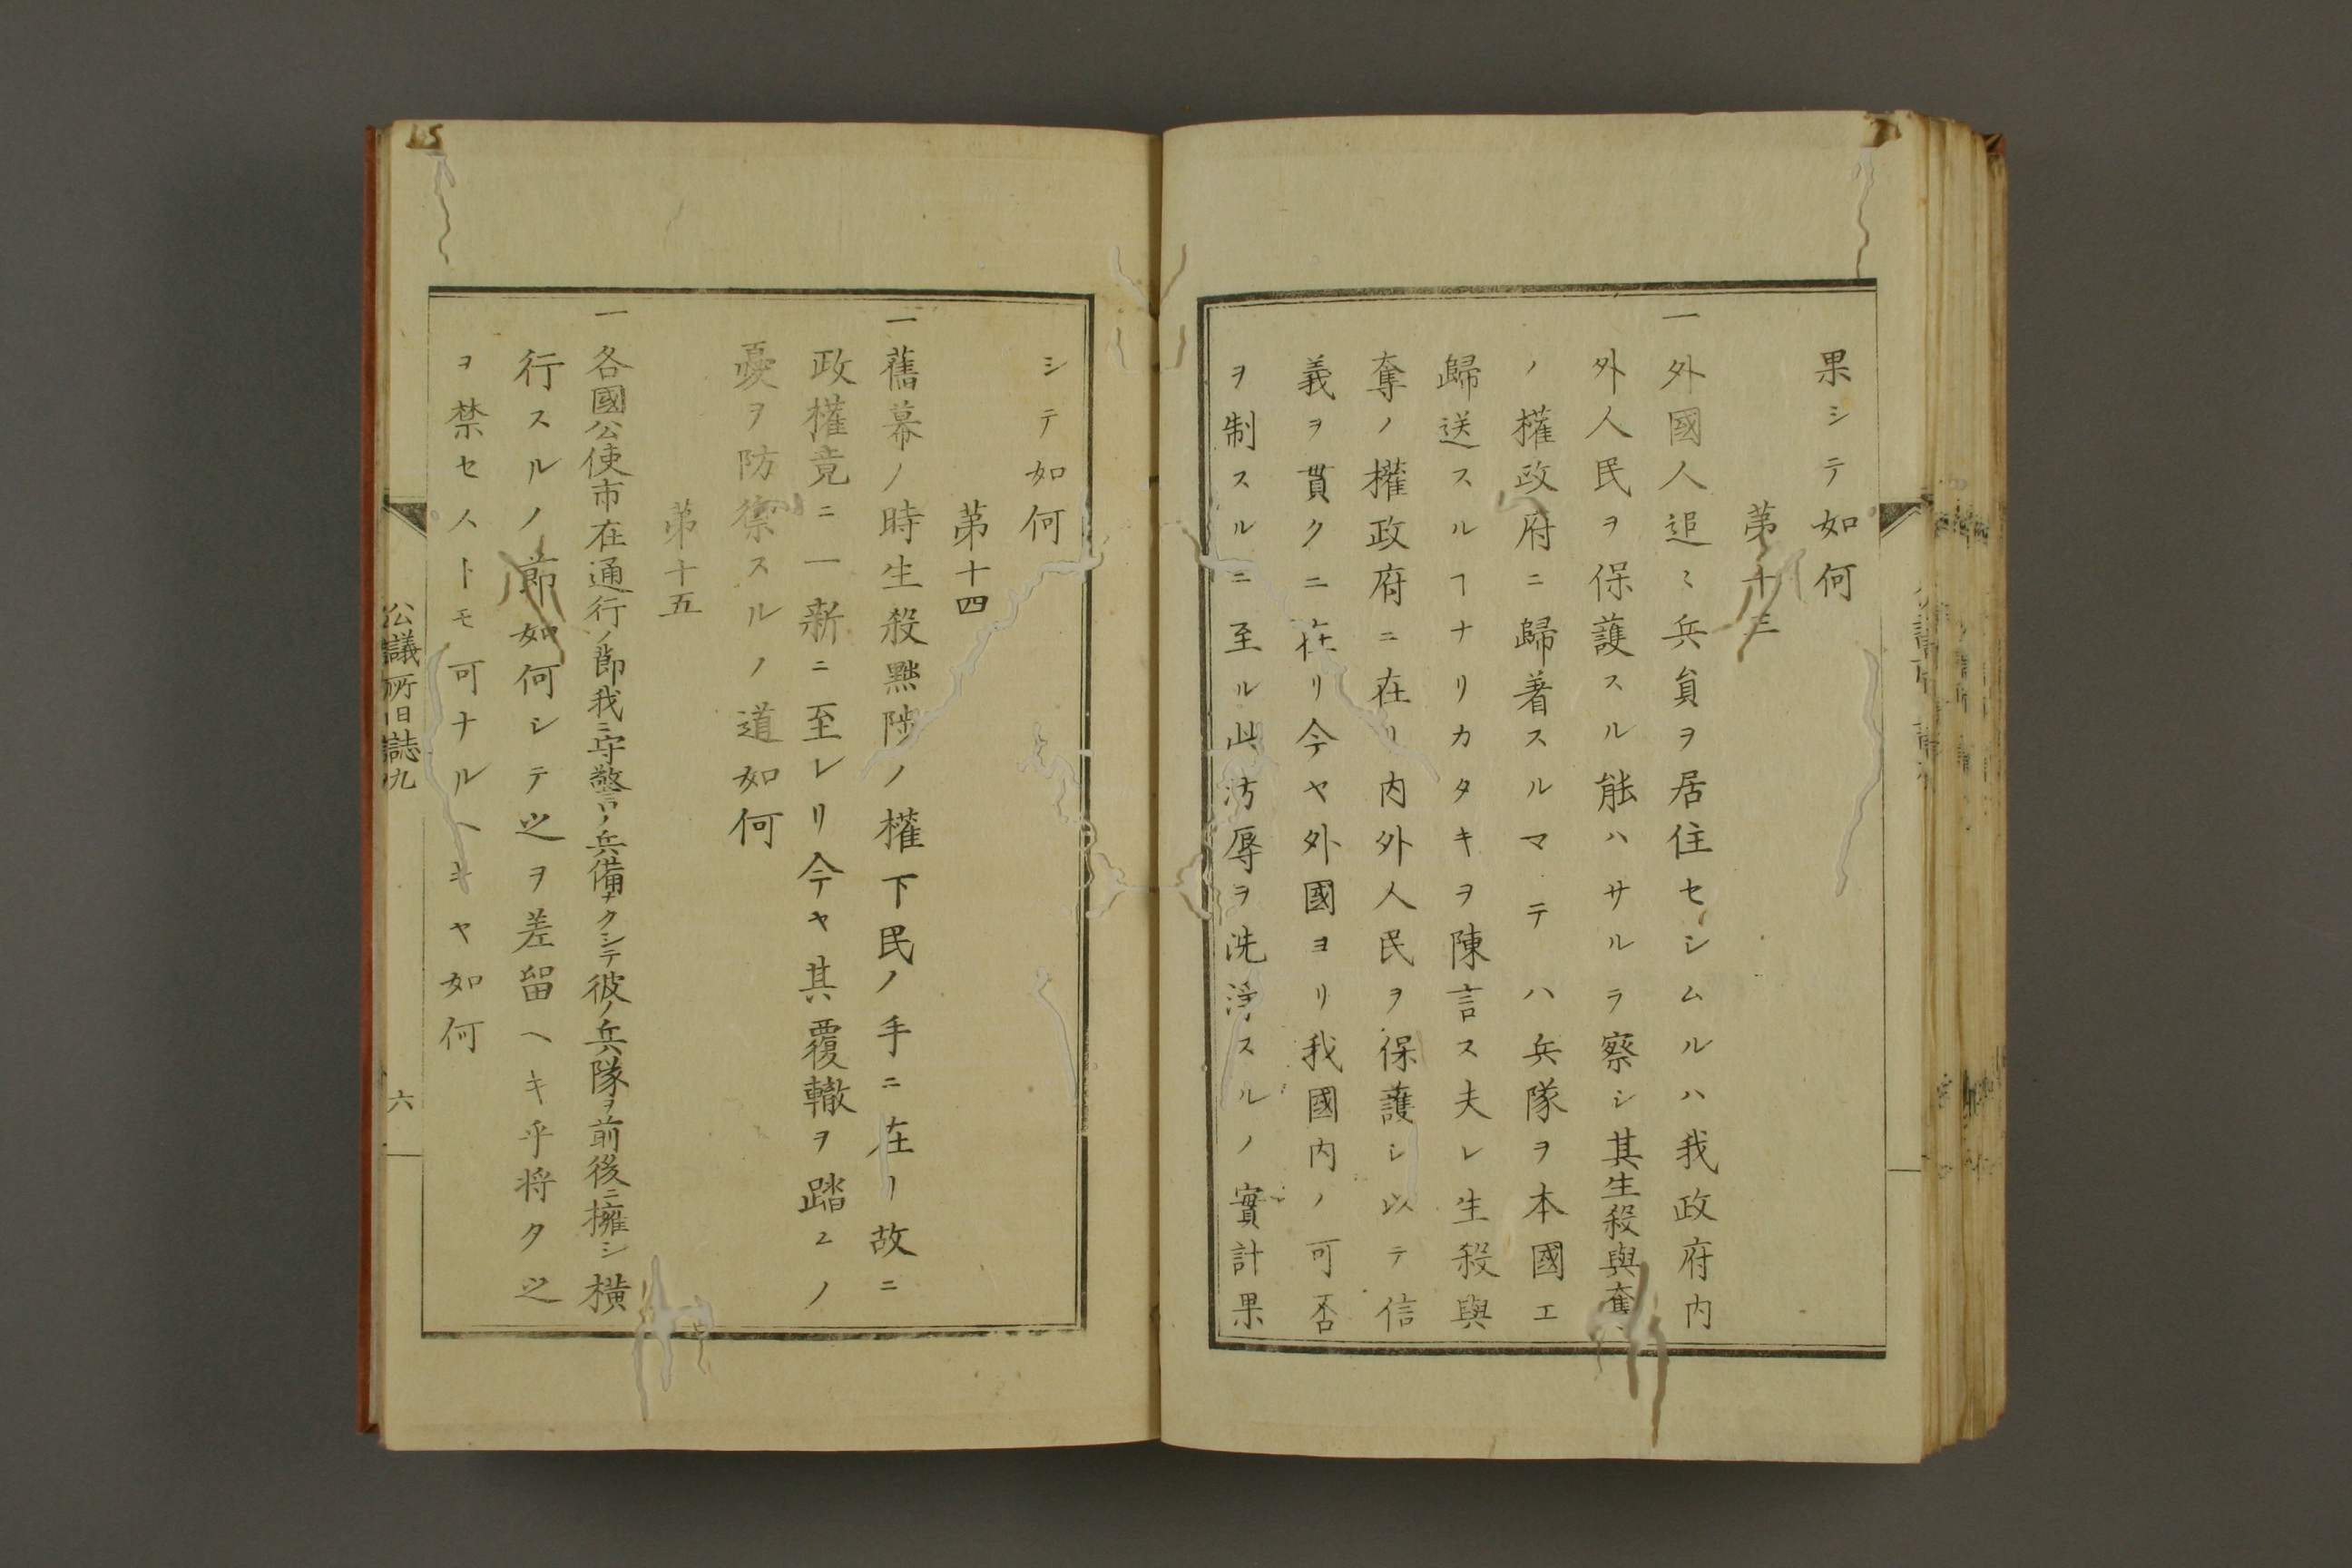 果シテ如何
第十三
一外國人追〻兵員ヲ居住セシムルハ我政府内
外人民ヲ保護スル能ハサルラ察シ其生殺與奪
ノ權政府ニ歸着スルマテハ兵隊ヲ本國エ
歸送スルヿナリカタキヲ陳言ス夫レ生殺與
奪ノ權政府ニ在リ内外人民ヲ保護シ以テ信
義ヲ貫クニ在リ今ヤ外國ヨリ我國内ノ可否
ヲ制スルニ至ル此汚辱ヲ洗浄スルノ實計果
シテ如何
第十四
一舊幕ノ時生殺黜陟ノ權下民ノ手ニ在リ故ニ
政權竟ニ一新ニ至レリ今ヤ其覆轍ヲ踏ムノ
憂ヲ防禦スルノ道如何
第十五
一各國公使市在通行ノ節我ニ守警ノ兵備ナクシテ彼ノ兵隊ヲ前後ニ擁シ横
行スルノ節如何シテ之ヲ差留ヘキ乎将タ之
ヲ禁セストモ可ナルヘキヤ如何
公議所日誌九
六
15